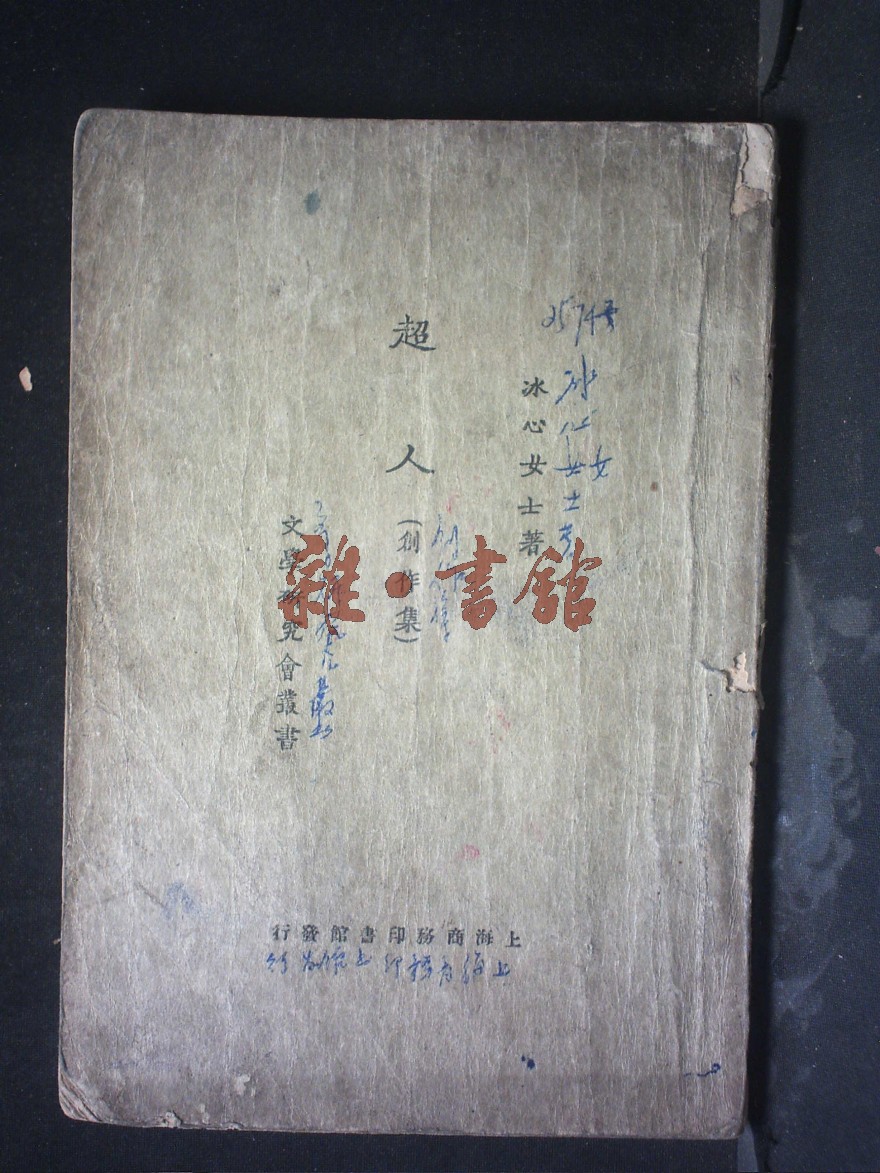 冰心女士著
冰心女士著
超人
(創作集)
創作集
文學研究會叢書
文學研究會叢書
上海商務印書館發行
上海商務印書館發行
雜·書館